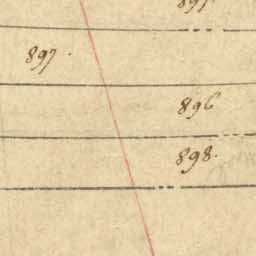 897.
896
898.